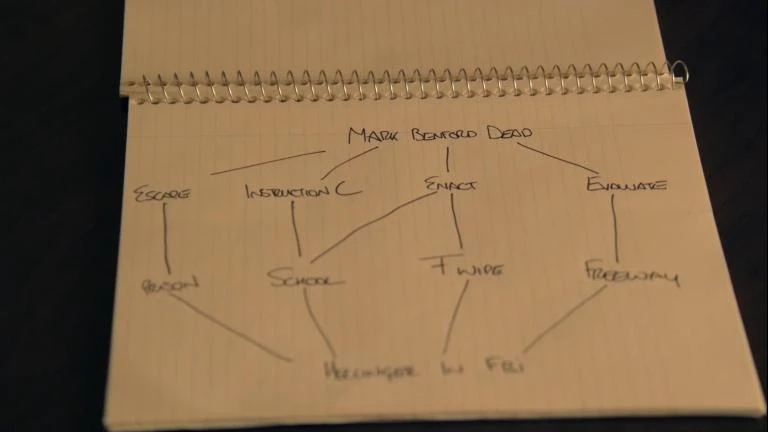 MARK BENFORD DEAD
ESCAPE INSTRUCTION C ENACT EVALUATE
PRISON SCHOOL T WIPE FREEWAY
HELLINGER IN FBI